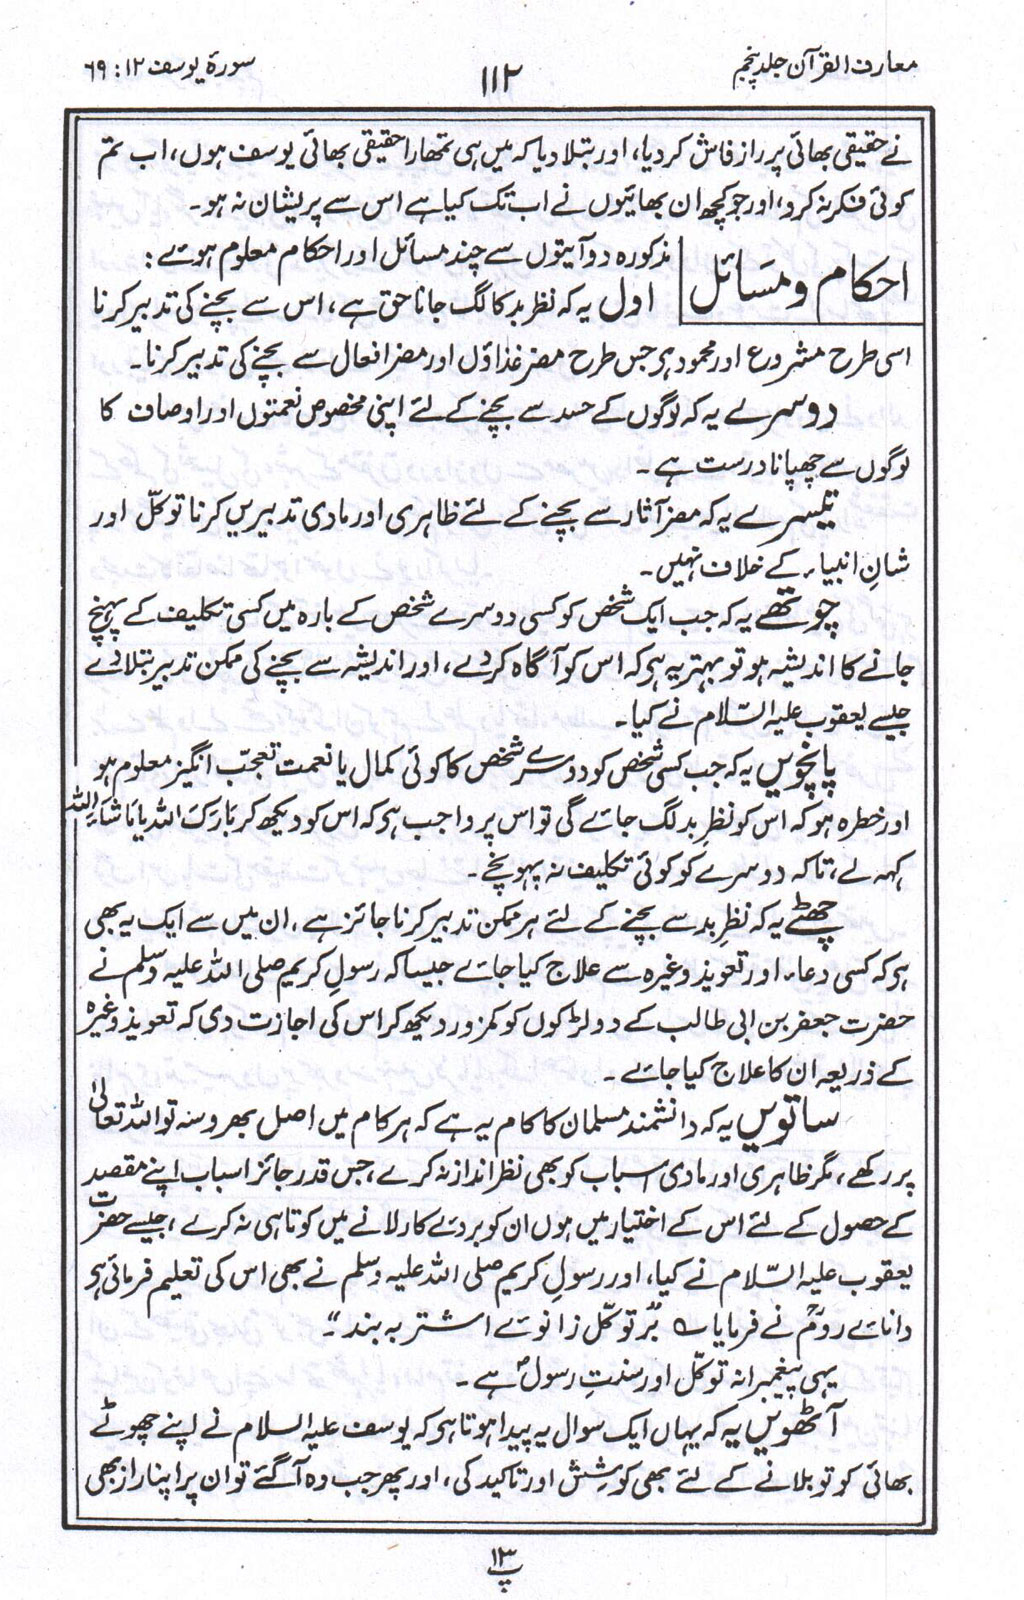 معارف القرآن جلد پنجم
۱۱۲
سورۂ یوسف ۱۲: ۶۹
نے حقیقی بھائی پر راز فاش کردیا، اور بتلا دیا کہ میں ہی تمھارا حقیقی بھائی یوسف ہوں، اب تم
کوئی فکر نہ کرو، اور جو کچھ ان بھائیوں نے اب تک کیا ہے اس سے پریشان نہ ہو۔
احکام و مسائل
مذکورہ دو آیتوں سے چند مسائل اور احکام معلوم ہوئے:
اول یہ کہ نظر بد کا لگ جانا حق ہے، اس سے بچنے کی تدبیر کرنا
اسی طرح مشروع اور محمود ہی جس طرح مضر غذاؤں اور مضر افعال سے بچنے کی تدبیر کرنا۔
دوسرے یہ کہ لوگوں کے حسد سے بچنے کے لئے اپنی مخصوص نعمتوں اور اوصاف کا
لوگوں سے چھپانا درست ہے۔
تیسرے یہ کہ مضر آثار سے بچنے کے لئے ظاہری اور مادی تدبیریں کرنا توکّل اور
شانِ انبیاء کے خلاف نہیں۔
چوتھے یہ کہ جب ایک شخص کو کسی دوسرے شخص کے بارہ میں کسی تکلیف کے پہنچ
جانے کا اندیشہ ہو تو بہتر یہ ہی کہ اس کو آگاہ کردے، اور اندیشہ سے بچنے کی ممکن تدبیر بتلا دے
جیسے یعقوب علیہ السّلام نے کیا۔
پانچویں یہ کہ جب کسی شخص کو دوسرے شخص کا کوئی کمال یا نعمت تعجّب انگیز معلوم ہو
اور خطرہ ہو کہ اس کو نظرِ بد لگ جائے گی تو اس پر واجب ہی کہ اس کو دیکھ کر بَارَکَ اللہ یا مَا شَاءَ اللہ
کہہ لے، تاکہ دوسرے کو کوئی تکلیف نہ پہونچے۔
چھٹے یہ کہ نظرِ بد سے بچنے کے لئے ہر ممکن تدبیر کرنا جائز ہے، ان میں سے ایک یہ بھی
ہو کہ کسی دعاء اور تعویذ وغیرہ سے علاج کیا جائے جیسا کہ رسولِ کریم صلی اللہ علیہ وسلم نے
حضرت جعفر بن ابی طالب کے دو لڑکوں کو کمزور دیکھ کر اس کی اجازت دی کہ تعویذ وغیرہ
کے ذریعہ ان کا علاج کیا جائے۔
ساتویں یہ کہ دانشمند مسلمان کا کام یہ ہے کہ ہر کام میں اصل بھروسہ تو اللہ تعالیٰ
پر رکھے، مگر ظاہری اور مادی اسباب کو بھی نظر انداز نہ کرے، جس قدر جائز اسباب اپنے مقصد
کے حصول کے لئے اس کے اختیار میں ہوں ان کو بروئے کار لانے میں کوتاہی نہ کرے، جیسے حضرت
یعقوب علیہ السّلام نے کیا، اور رسولِ کریم صلی اللہ علیہ وسلم نے بھی اس کی تعلیم فرمائی ہی
دانائے رومؒ نے فرمایا ؎ ’’بر توکّل زانوئے اشتر بہ بند‘‘۔
یہی پیغمبرانہ توکّل اور سنتِ رسولؐ ہے۔
آٹھویں یہ کہ یہاں ایک سوال یہ پیدا ہوتا ہی کہ یوسف علیہ السلام نے اپنے چھوٹے
بھائی کو تو بلانے کے لئے بھی کوشش اور تاکید کی، اور پھر جب وہ آگئے تو ان پر اپنا راز بھی
پ ۱۳